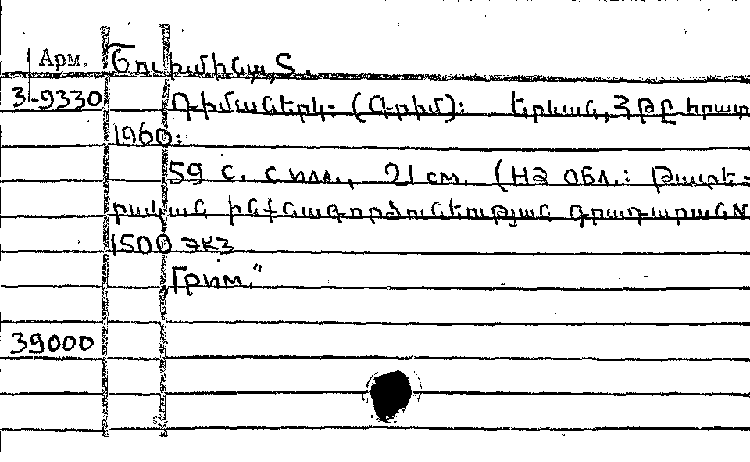 Арм. Շուրմինա, Տ.
3-9330 Դիմաներկ: (Գրիմ): Երևան, ՀԹԸ հրատ
1960:
59 с. с илл., 21 см. (На обл.: Թատե-
րական ինքնագործունեության գրադարան N
1500 экз
"Грим."
39000